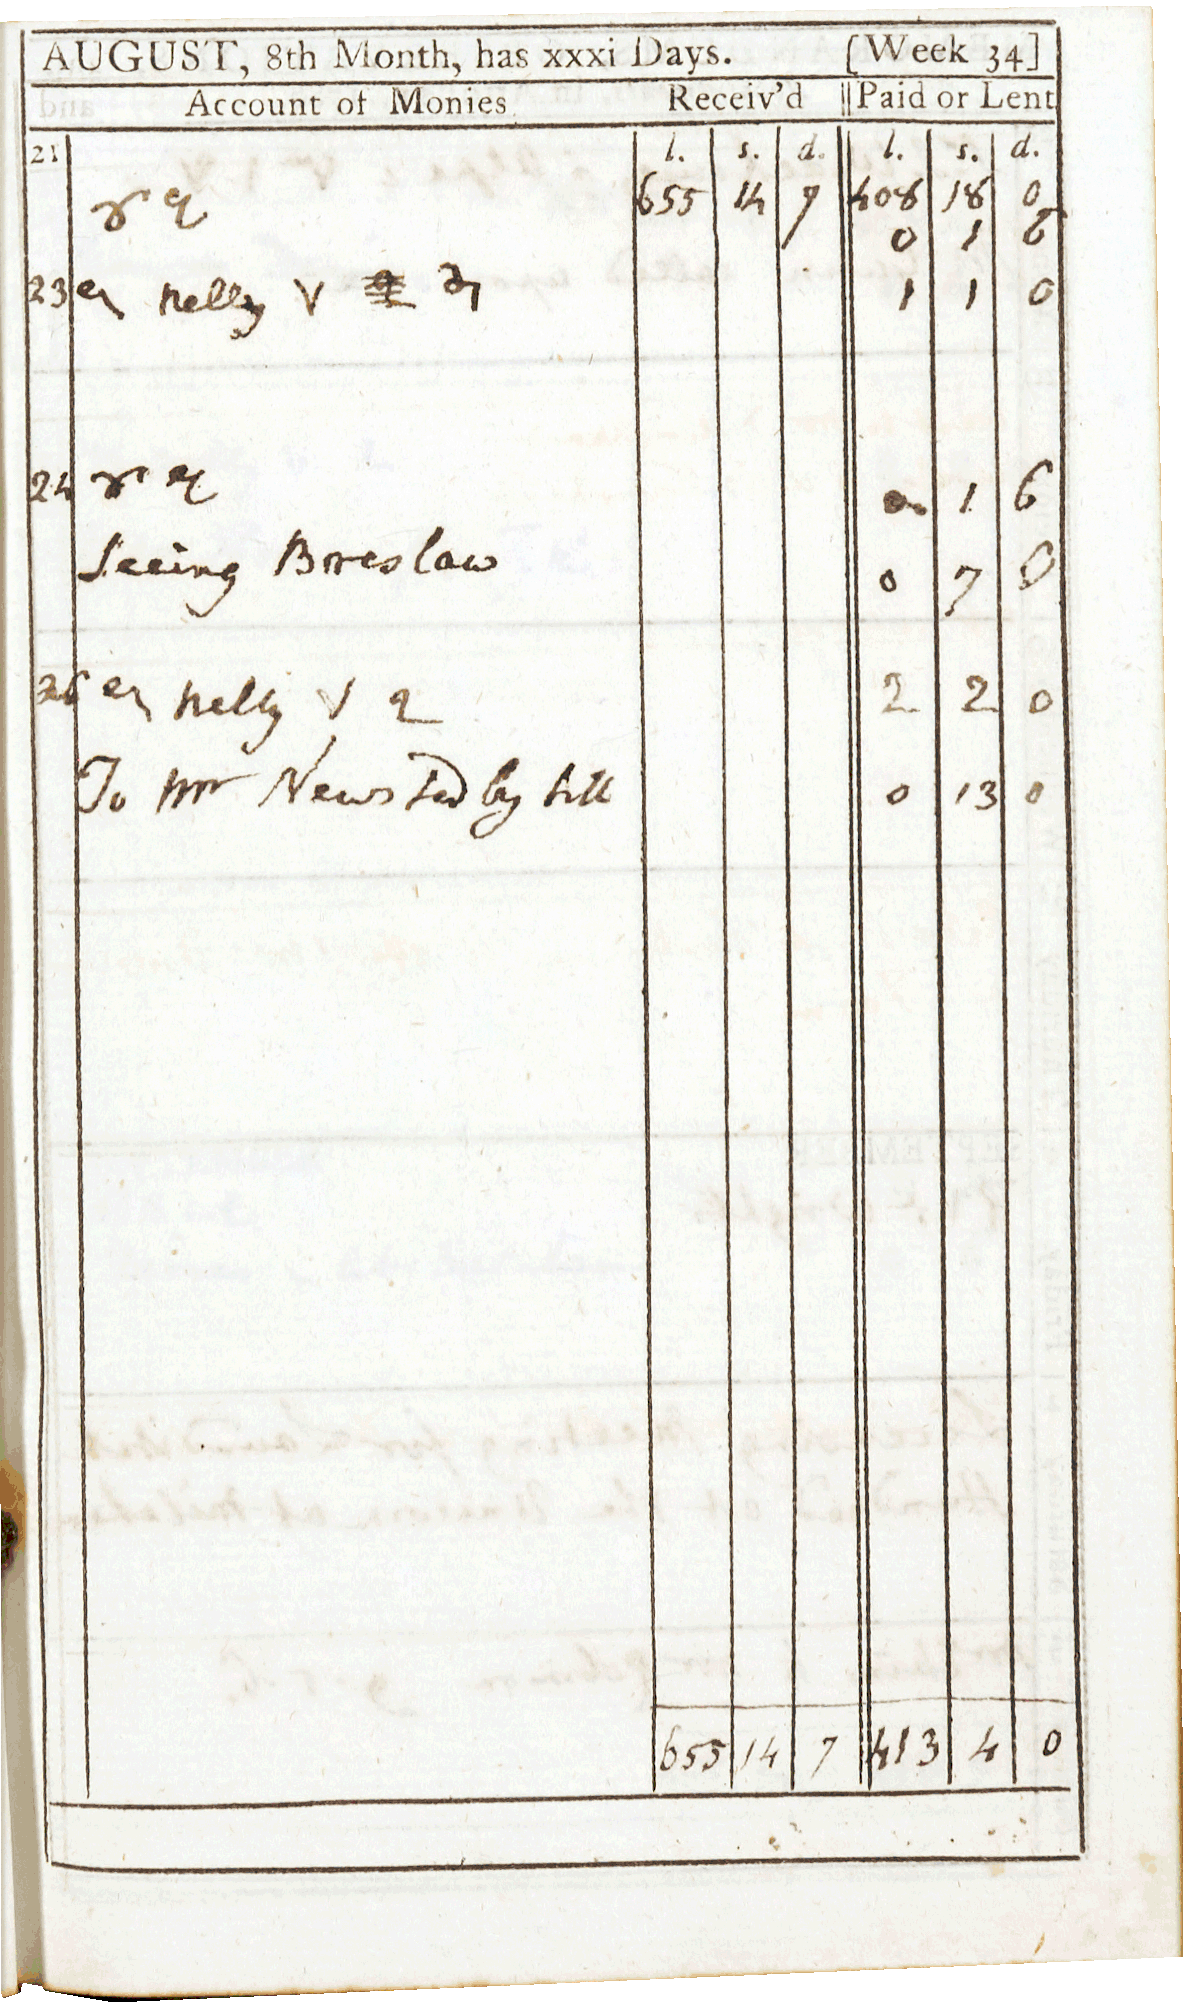 AUGUST, 8th Month, has xxxi Days. [Week 34]
Account of Monies Receiv'd Paid or Lent
21 l. s. d. l. s. d.
655 14 7 408 18 0
0 1 6
23 Nelly V 1 1 0
24 0 1 6
Seeing Breslaw 0 7 0
26 Nelly V 2 2 0
To Mr Newsted by bill 0 13 0
655 14 7 413 4 0